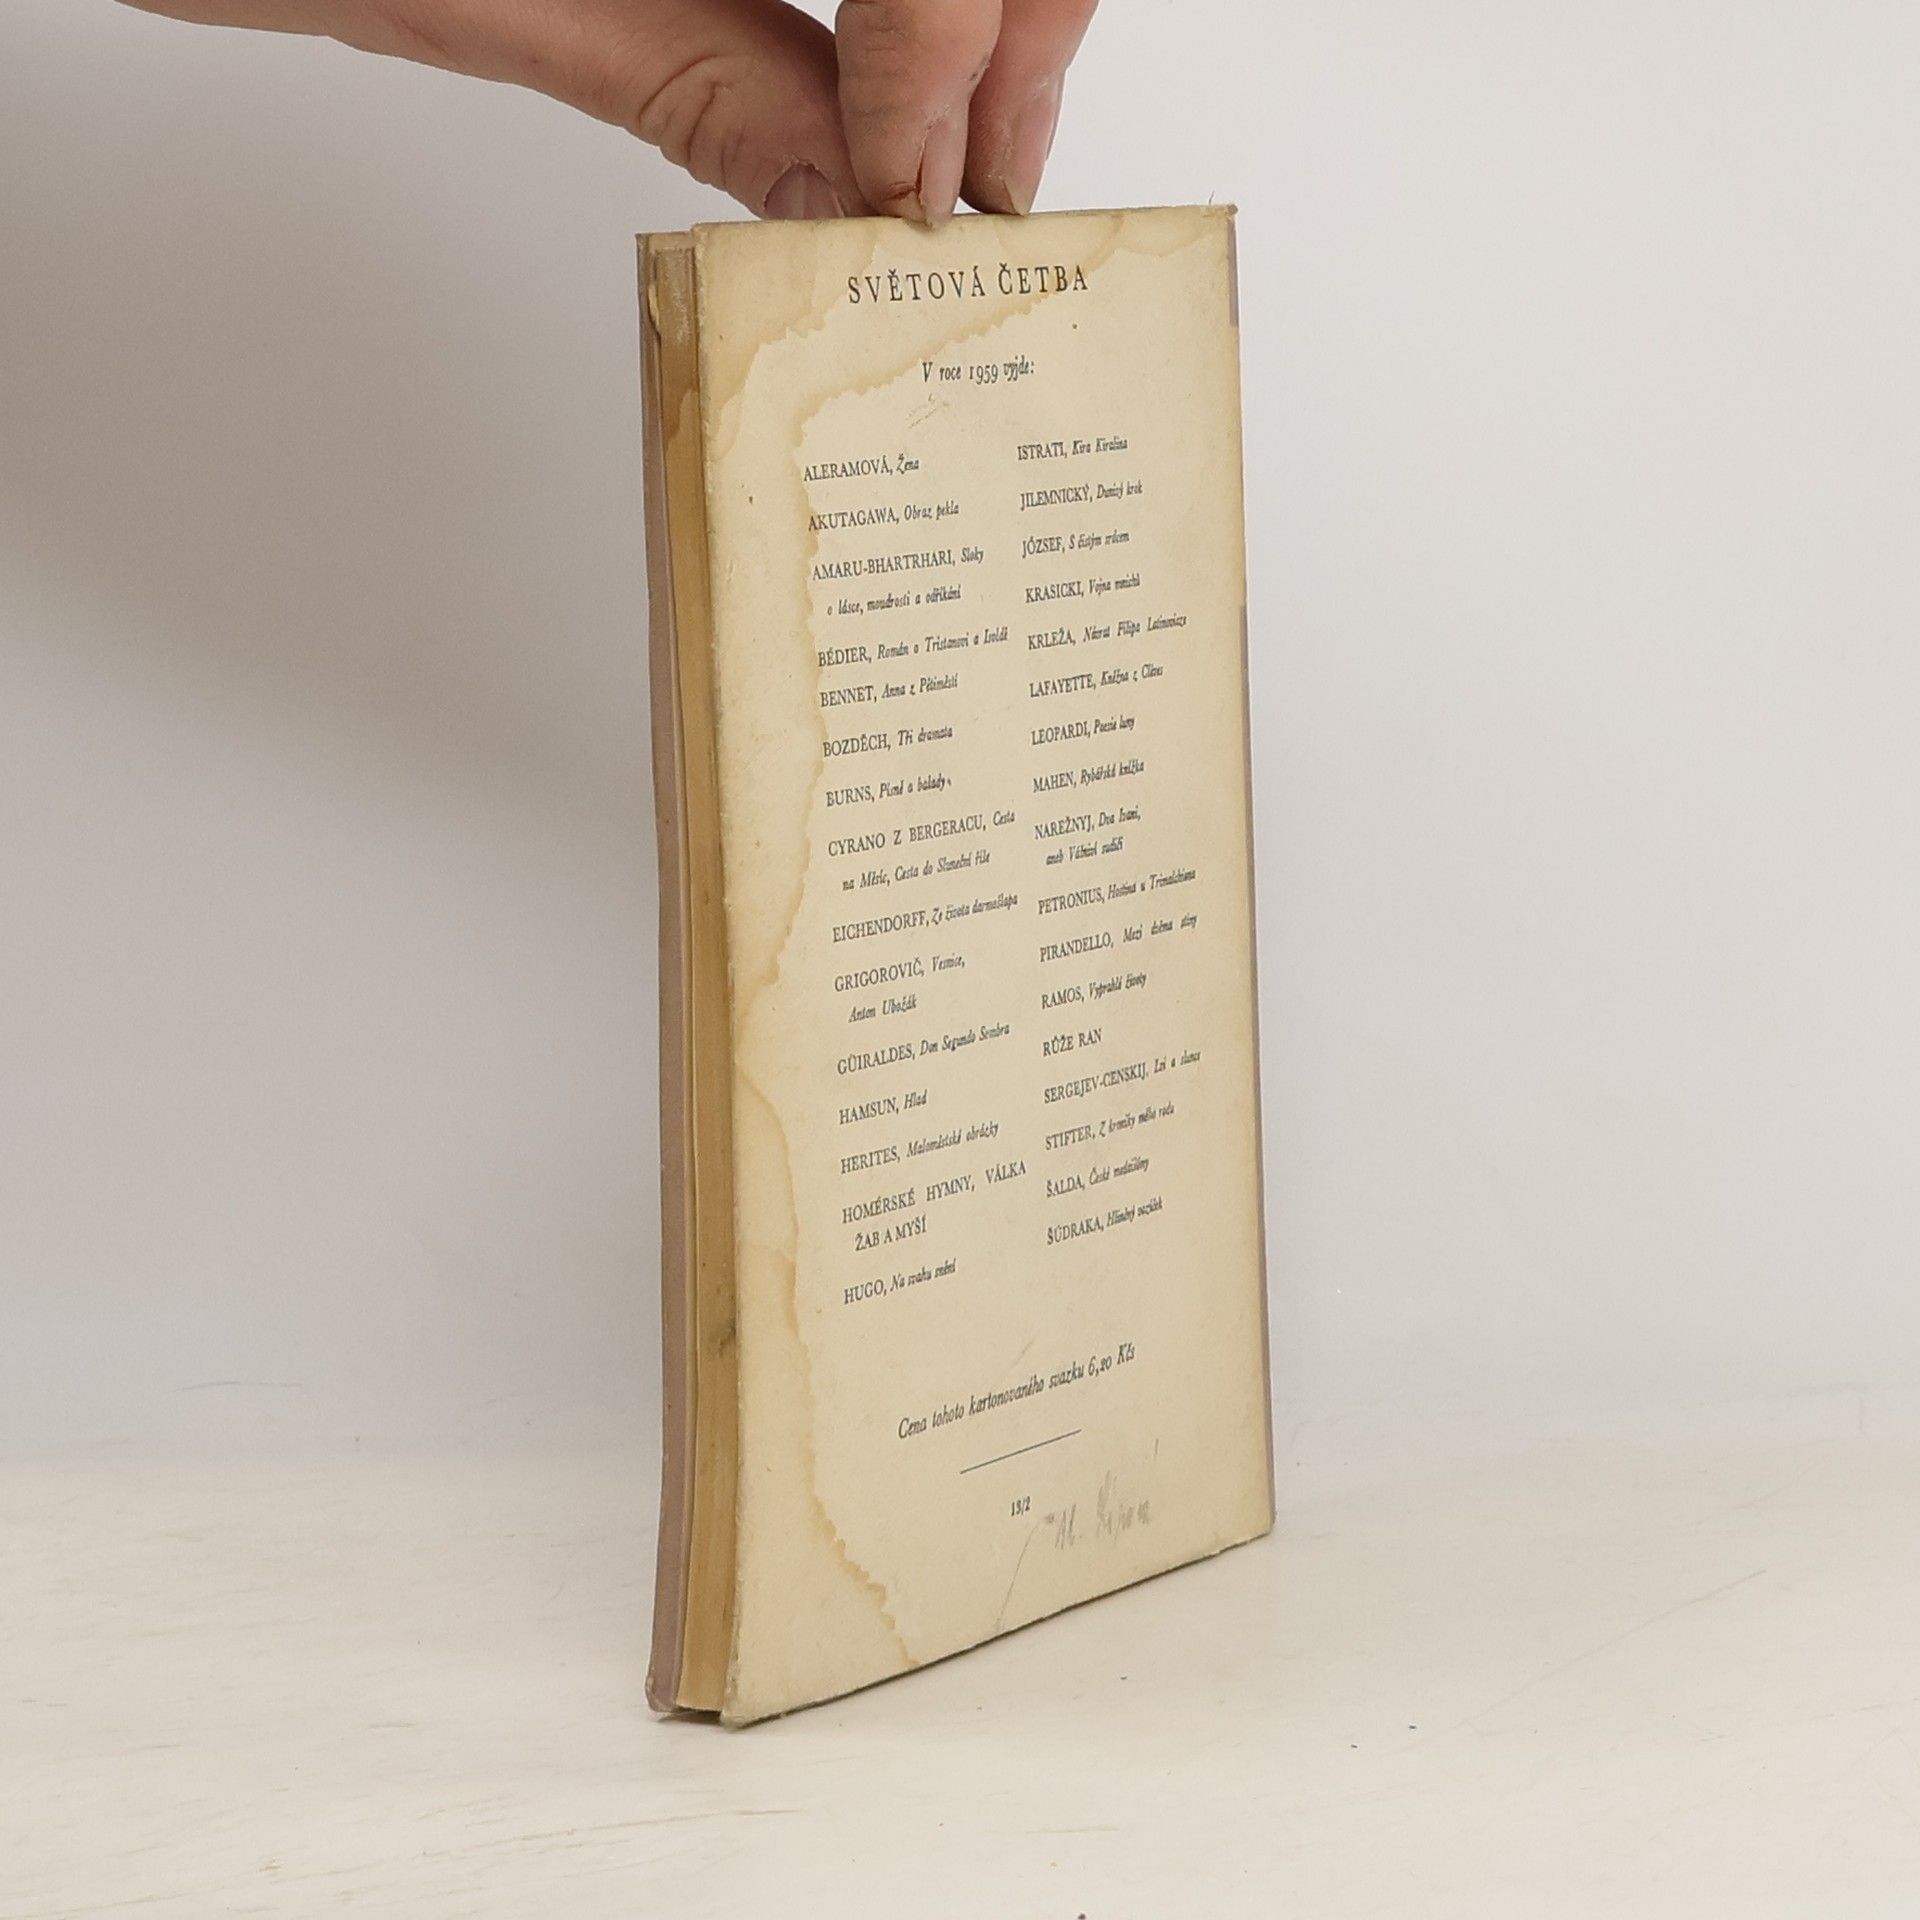 SVĚTOVÁ ČETBA
V roce 1959 vyjde:
ALERAMOVÁ, Žena
AKUTAGAWA, Obraz pekla
AMARU-BHARTRHARI, Sloky
o lásce, moudrosti a odříkání
BÉDIER, Román o Tristanovi a Isoldě
BENNET, Anna z Pětiměstí
BOZDĚCH, Tři dramata
BURNS, Písně a balady
CYRANO Z BERGERACU, Cesta
na Měsíc, Cesta do Sluneční říše
EICHENDORFF, Ze života darmošlapa
GRIGOROVIČ, Vesnice,
Anton Ubožák
GÜIRALDES, Don Segundo Sombra
HAMSUN, Hlad
HERITES, Maloměstské obrázky
HOMÉRSKÉ HYMNY, VÁLKA
ŽAB A MYŠÍ
HUGO, Na svahu snění
ISTRATI, Kira Kiralina
JILEMNICKÝ, Dunivý krok
JÓZSEF, S čistým srdcem
KRASICKI, Vojna mnichů
KRLEŽA, Návrat Filipa Latinovicze
LAFAYETTE, Kněžna z Clèves
LEOPARDI, Poesie luny
MAHEN, Rybářská knížka
NAREŽNYJ, Dva Ivani,
aneb Vášniví sudiči
PETRONIUS, Hostina u Trimalchiona
PIRANDELLO, Mezi dvěma stíny
RAMOS, Vyprahlé životy
RŮŽE RAN
SERGEJEV-CENSKIJ, Lsi a slunce
STIFTER, Z kroniky mého rodu
ŠALDA, České medailóny
ŠÚDRAKA, Hliněný vozíček
Cena tohoto kartonovaného svazku 6,20 Kčs
13/2